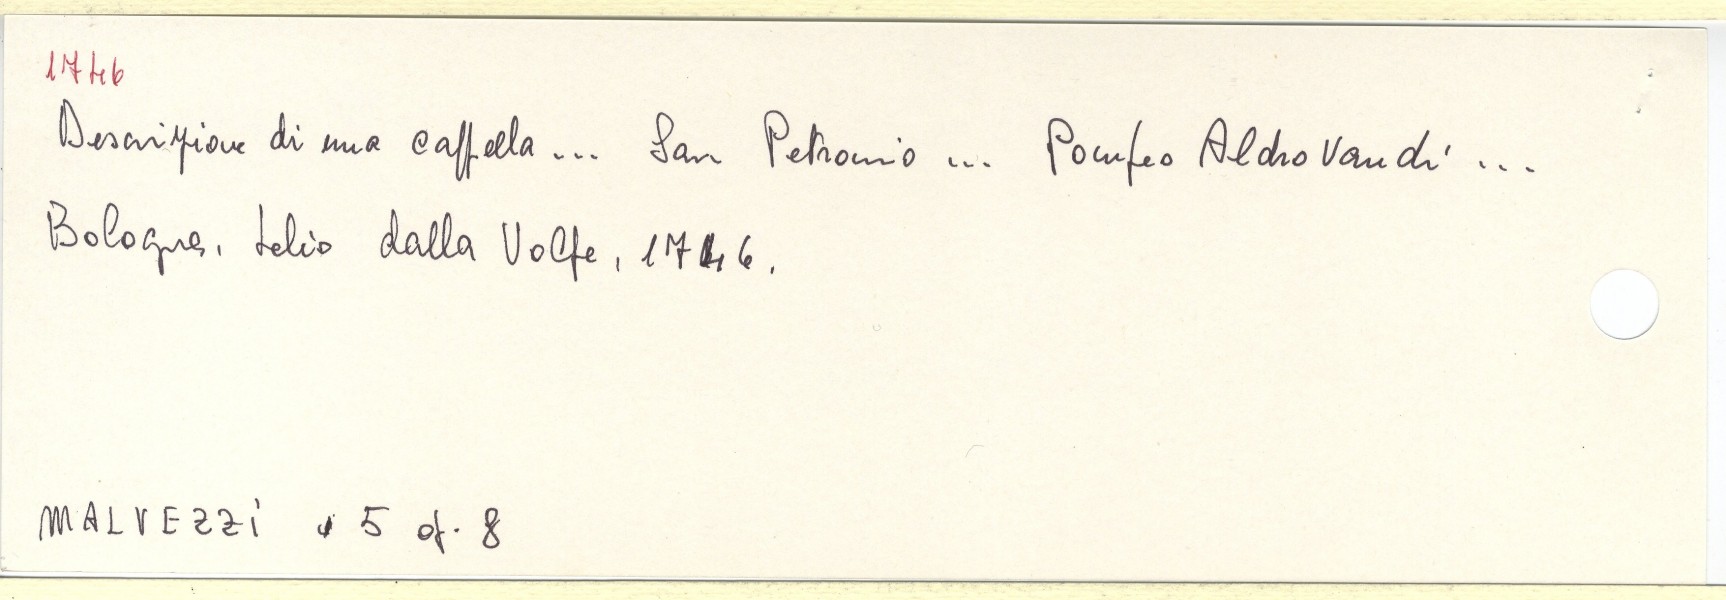 1746
Descrizione di una cappella ... San Petronio ... Pompeo Aldrovandi ...
Bologna, Lelio dalla Volpe, 1746.
MALVEZZI 5 op. 8